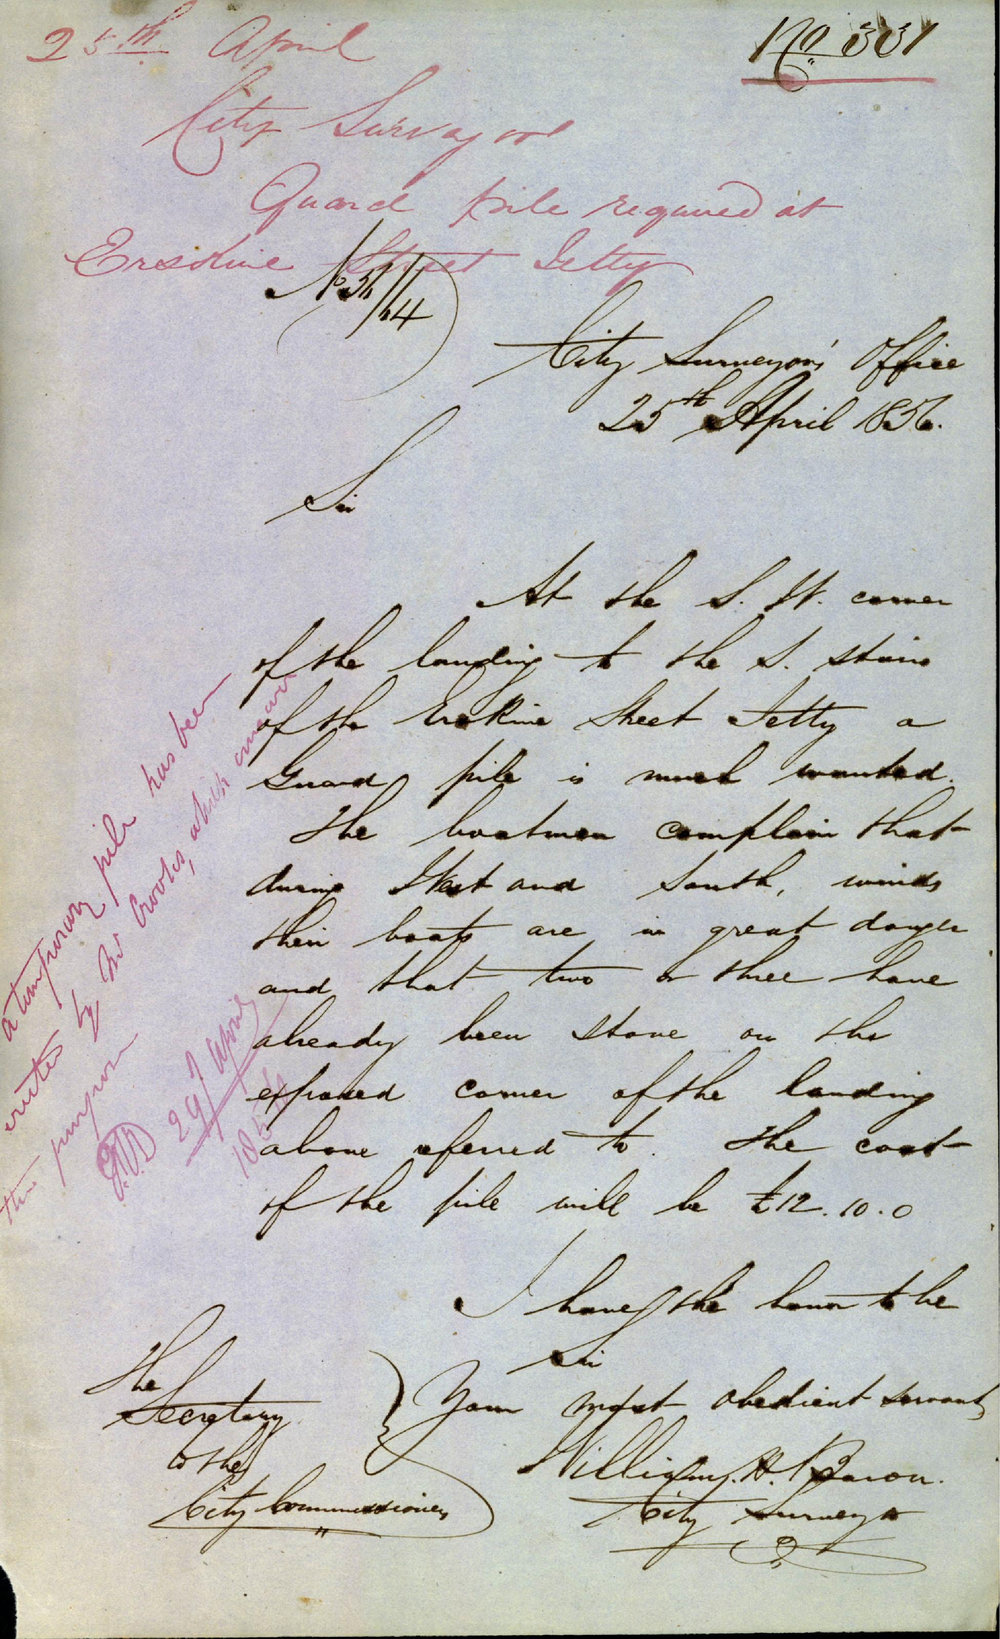 25th April
No 331
City Surveyor
Guard pile required at
Erskine Street Jetty
No 56/64
City Surveyor's Office
25th April 1856.
Sir
At the S. W. corner
of the landing to the S. stairs
of the Erskine Street Jetty a
Guard pile is much wanted.
The boatmen complain that
during West and South, winds
their boats are in great danger
and that two or three have
already been stove on the
exposed corner of the landing
above referred to. The cost
of the pile will be £12.10.0
I have the honor to be
Sir
Your most obedient servant
William H. Baron.
City Surveyor
The
Secretary
to the
City Commissioners
a temporary pile has been
erected by Mr Crooks, which answers
the purpose
29 April
1856